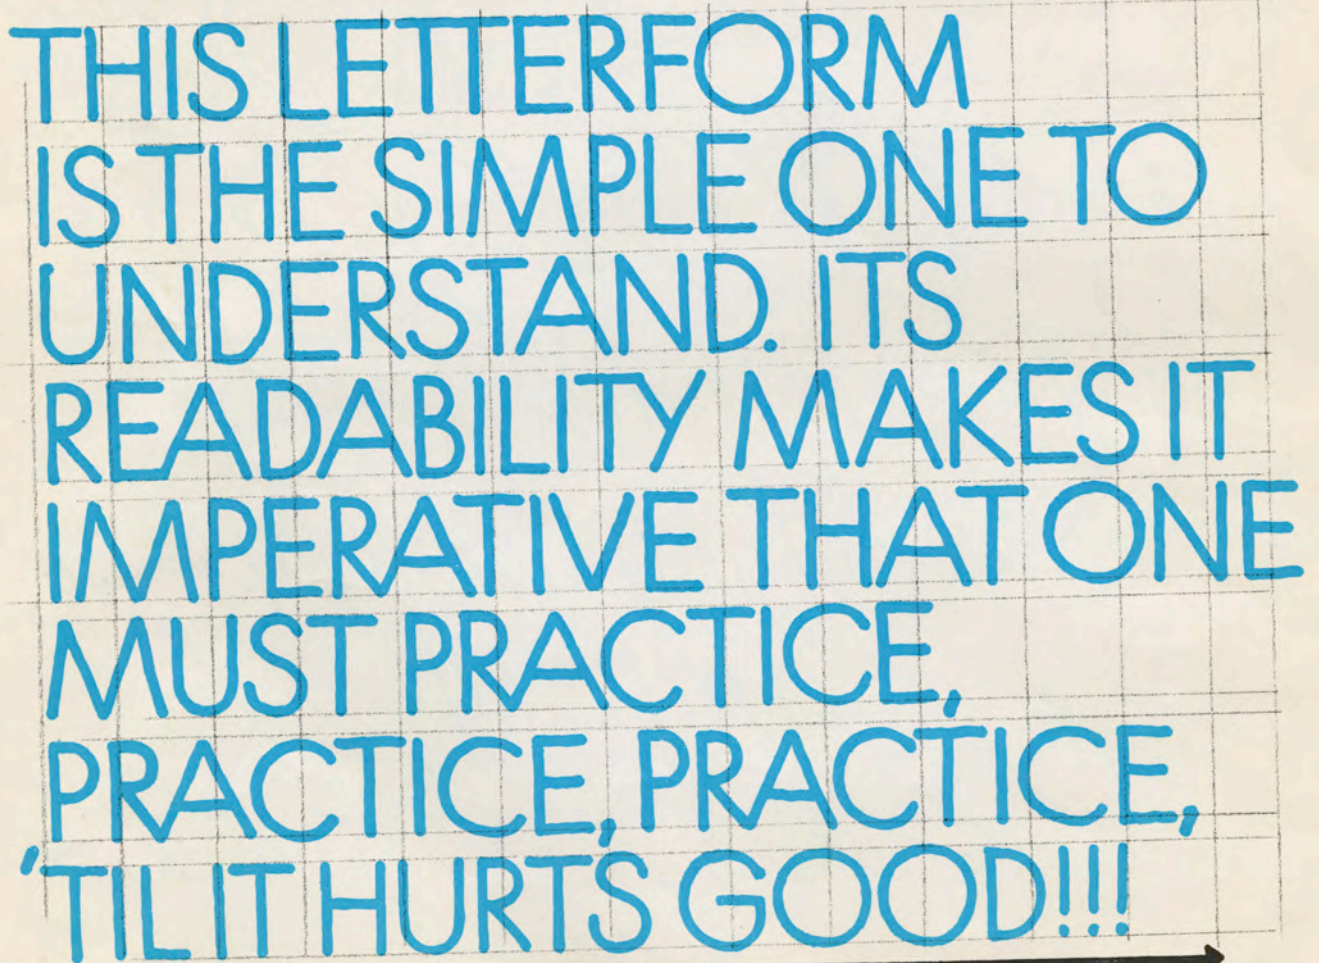 THIS LETTERFORM
IS THE SIMPLE ONE TO
UNDERSTAND. ITS
READABILITY MAKES IT
IMPERATIVE THAT ONE
MUST PRACTICE,
PRACTICE, PRACTICE,
'TIL IT HURTS GOOD!!!